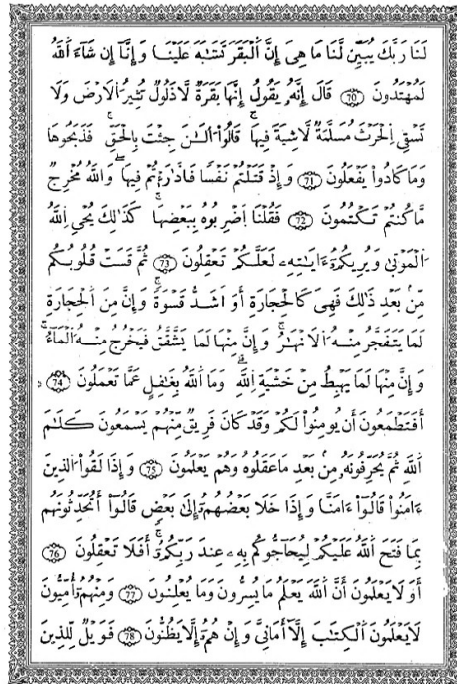 لَنَا رَبَّكَ يُبَيِّن لَّنَا مَا هِيَ إِنَّ ٱلْبَقَرَ تَشَٰبَهَ عَلَيْنَا وَإِنَّا إِن شَآءَ ٱللَّهُ
لَمُهْتَدُونَ 70 قَالَ إِنَّهُۥ يَقُولُ إِنَّهَا بَقَرَةٌ لَّا ذَلُولٌ تُثِيرُ ٱلَارْضَ وَلَا
تَسْقِى ٱلْحَرْثَ مُسَلَّمَةٌ لَّاشِيَةَ فِيهَا قَالُواْ ٱلَٰنَ جِئْتَ بِٱلْحَقِّ فَذَبَحُوهَا
وَمَا كَادُواْ يَفْعَلُونَ 71 وَإِذْ قَتَلْتُمْ نَفْسًا فَٱدَّٰرَٰٔتُمْ فِيهَا وَٱللَّهُ مُخْرِجٌ
مَّا كُنتُمْ تَكْتُمُونَ 72 فَقُلْنَا ٱضْرِبُوهُ بِبَعْضِهَا كَذَٰلِكَ يُحْيِ ٱللَّهُ
ٱلْمَوْتَىٰ وَيُرِيكُمُۥٓ ءَايَٰتِهِۦ لَعَلَّكُمْ تَعْقِلُونَ 73 ثُمَّ قَسَتْ قُلُوبُكُم
مِّنۢ بَعْدِ ذَٰلِكَ فَهِىَ كَٱلْحِجَارَةِ أَوَ اشَدُّ قَسْوَةً وَإِنَّ مِنَ ٱلْحِجَارَةِ
لَمَا يَتَفَجَّرُ مِنْهُ ٱلَانْهَٰرُ وَإِنَّ مِنْهَا لَمَا يَشَّقَّقُ فَيَخْرُجُ مِنْهُ ٱلْمَآءُ
وَإِنَّ مِنْهَا لَمَا يَهْبِطُ مِنْ خَشْيَةِ ٱللَّهِ وَمَا ٱللَّهُ بِغَٰفِلٍ عَمَّا تَعْمَلُونَ 74
أَفَتَطْمَعُونَ أَن يُومِنُواْ لَكُمْ وَقَدْ كَانَ فَرِيقٌ مِّنْهُمْ يَسْمَعُونَ كَلَٰمَ
ٱللَّهِ ثُمَّ يُحَرِّفُونَهُۥ مِنۢ بَعْدِ مَا عَقَلُوهُ وَهُمْ يَعْلَمُونَ 75 وَإِذَا لَقُواْ ٱلذِينَ
ءَامَنُواْ قَالُوٓاْ ءَامَنَّا وَإِذَا خَلَا بَعْضُهُمُۥٓ إِلَىٰ بَعْضٍ قَالُوٓاْ أَتُحَدِّثُونَهُم
بِمَا فَتَحَ ٱللَّهُ عَلَيْكُمْ لِيُحَآجُّوكُم بِهِۦ عِندَ رَبِّكُمُۥٓ أَفَلَا تَعْقِلُونَ 76
أَوَلَا يَعْلَمُونَ أَنَّ ٱللَّهَ يَعْلَمُ مَا يُسِرُّونَ وَمَا يُعْلِنُونَ 77 وَمِنْهُمُۥٓ أُمِّيُّونَ
لَا يَعْلَمُونَ ٱلْكِتَٰبَ إِلَّآ أَمَانِىَّ وَإِنْ هُمُۥٓ إِلَّا يَظُنُّونَ 78 فَوَيْلٌ لِّلذِينَ